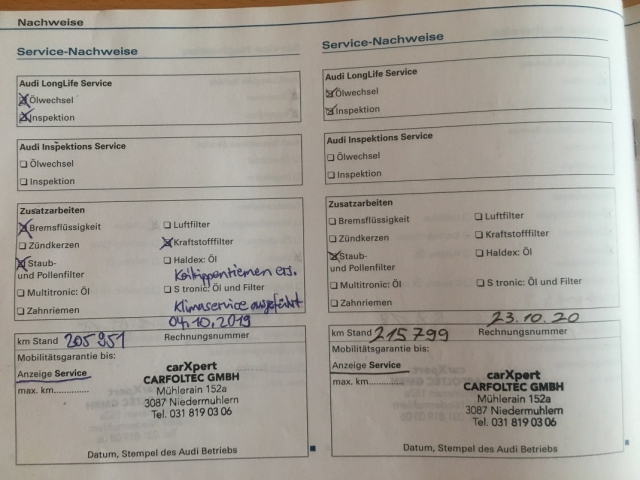 Nachweise
Service-Nachweise
Audi LongLife Service
Ölwechsel
Inspektion
Audi Inspektions Service
Ölwechsel
Inspektion
Zusatzarbeiten
Bremsflüssigkeit
Luftfilter
Zündkerzen
Kraftstofffilter
Staub-
und Pollenfilter
Haldex: Öl
Keilrippenriemen ers.
Multitronic: Öl
S tronic: Öl und Filter
Zahnriemen
Klimaservice ausgeführt
04.10.2019
km Stand 205951
Rechnungsnummer
Mobilitätsgarantie bis:
Anzeige Service
max. km..............
carXpert
CARFOLTEC GMBH
Mühlerain 152a
3087 Niedermuhlern
Tel. 031 819 03 06
Datum, Stempel des Audi Betriebs
Service-Nachweise
Audi LongLife Service
Ölwechsel
Inspektion
Audi Inspektions Service
Ölwechsel
Inspektion
Zusatzarbeiten
Bremsflüssigkeit
Luftfilter
Zündkerzen
Kraftstofffilter
Staub-
und Pollenfilter
Haldex: Öl
Multitronic: Öl
S tronic: Öl und Filter
Zahnriemen
23.10.20
km Stand 215799
Rechnungsnummer
Mobilitätsgarantie bis:
Anzeige Service
max. km..............
carXpert
CARFOLTEC GMBH
Mühlerain 152a
3087 Niedermuhlern
Tel. 031 819 03 06
Datum, Stempel des Audi Betriebs